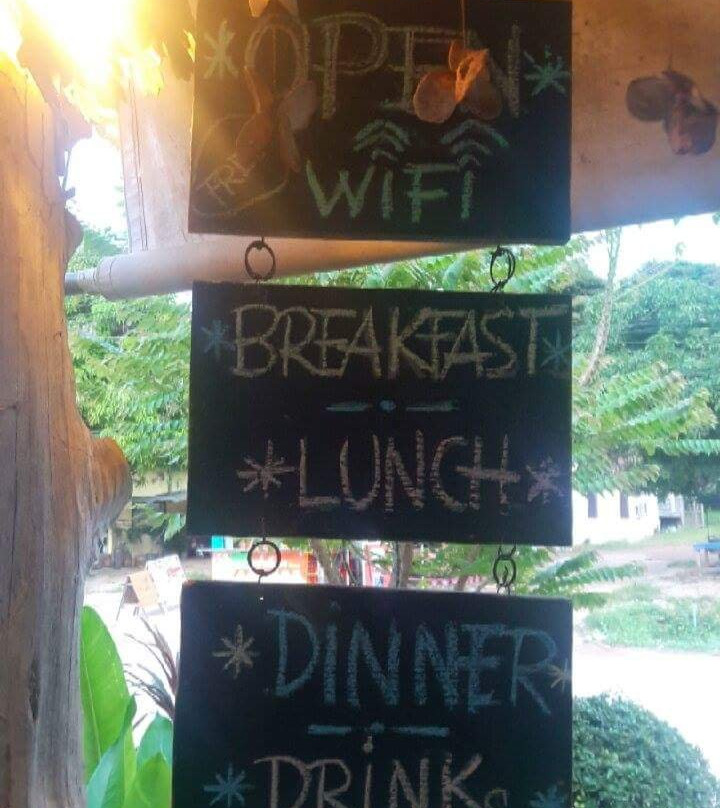 OPEN
FRE
WiFi
BREAKFAST
LUNCH
DiNNER
DRiNKs